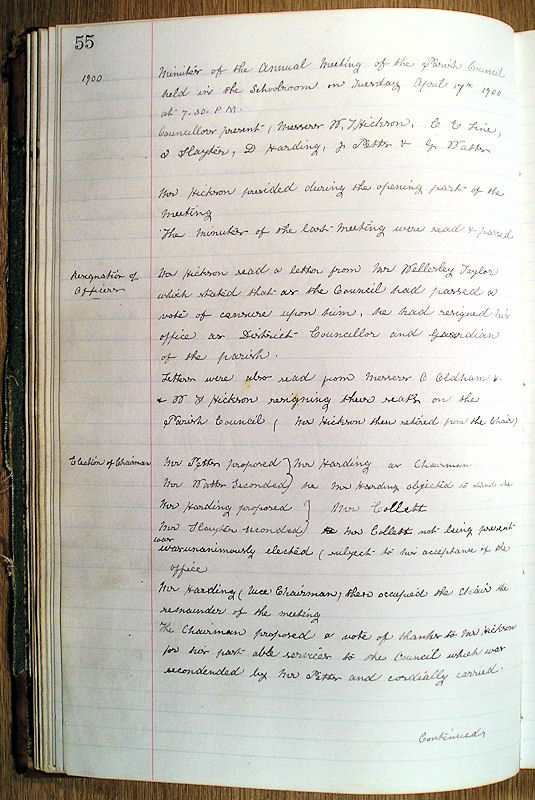 55
1900
Minutes of the Annual Meeting of the Parish Council
held in the Schoolroom on Tuesday April 17th 1900
at 7.30. P.M.
Councillors present, (Messers W. F Hickson, C C Line,
S Slayter, D Harding, J Petts & G Watts
Mr Hickson presided during the opening part of the
Meeting
The Minutes of the last Meeting were read & passed
Resignation of
Officers
Mr Hickson read a letter from Mr Wellesley Taylor
which stated that as the Council had passed a
vote of censure upon him, he had resigned his
office as District Councillor and Guardian
of the parish.
Letters were also read from Messers C Oldham &
& W F Hickson resigning their seats on the
Parish Council ( Mr Hickson then retired from the Chair)
Election of Chairman
Mr Petts proposed } Mr Harding as Chairman
Mr Watts Seconded } he Mr Harding objected to
Mr Harding proposed } Mr Collett
Mr Slayter seconded } Mr Collett not being present
was unanimously elected ( subject to his acceptance of the
office
Mr Harding ( Vice Chairman) then occupied the Chair the
remainder of the meeting
The Chairman proposed a vote of thanks to Mr Hickson
for his past able services to the Council which was
secondended by Mr Petts and cordially carried.
Continued